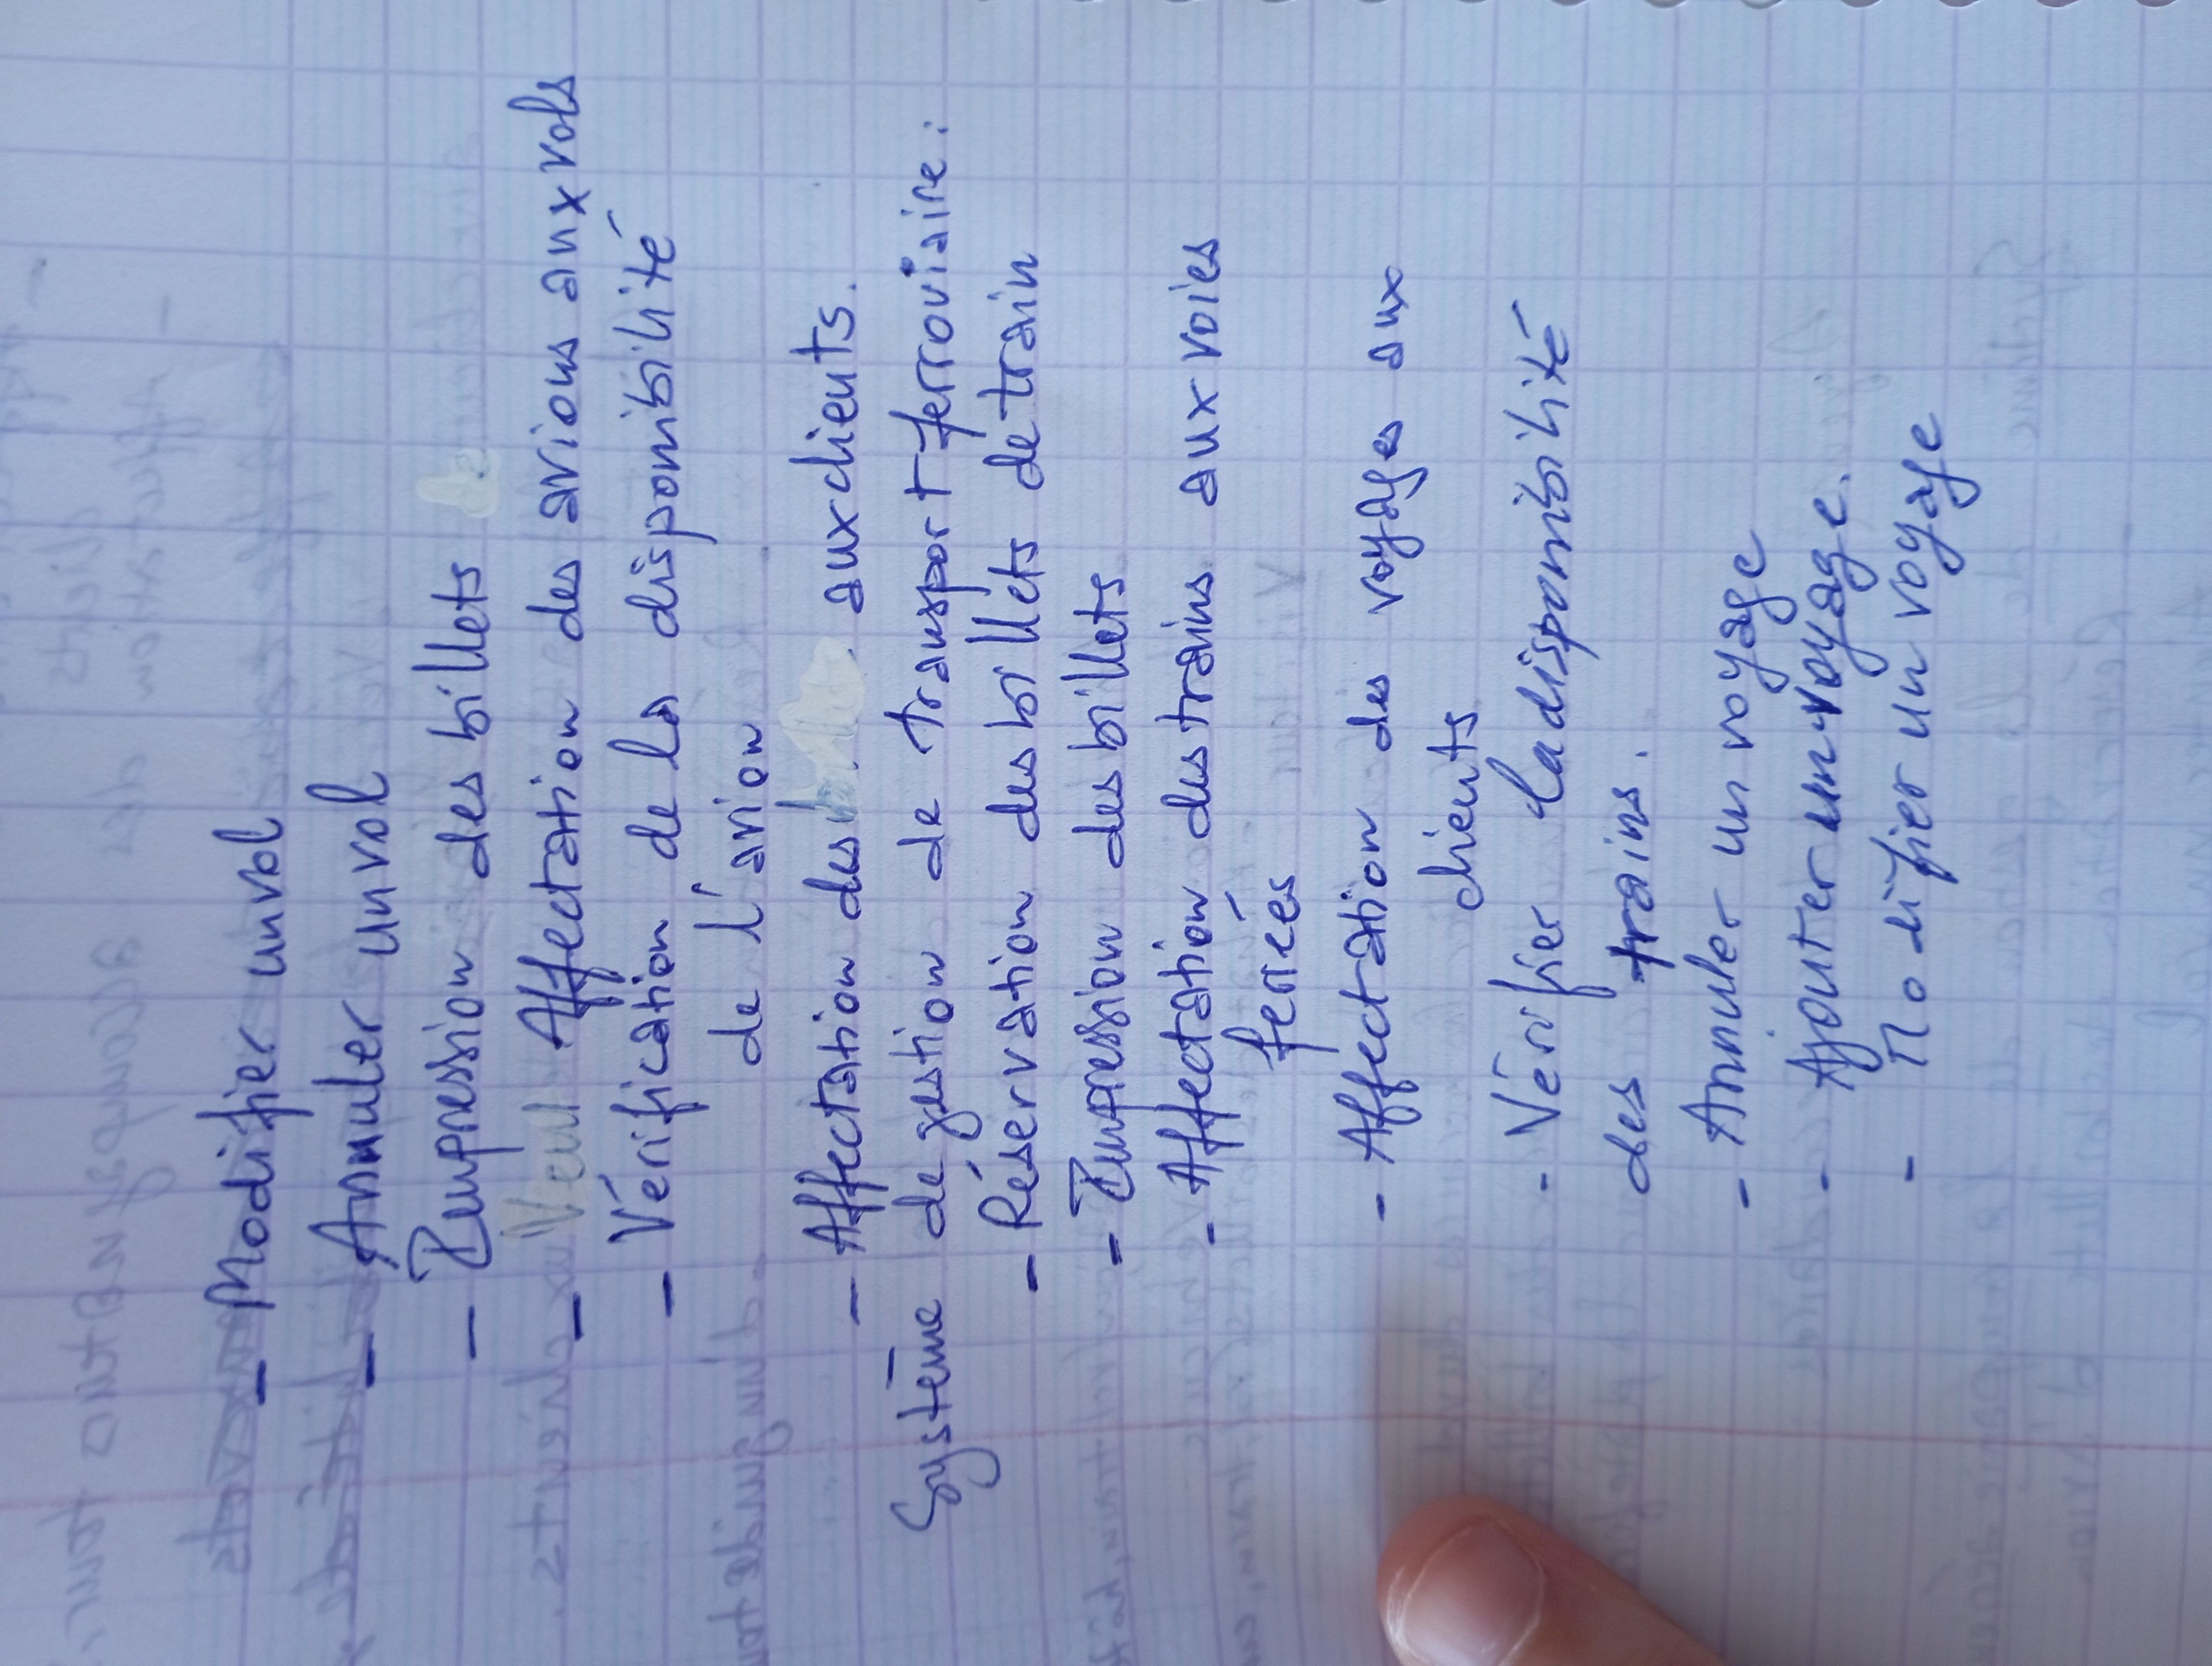 - Modifier un vol
- Annuler un vol
- Impression des billets
- Affectation des avions aux vols
- Vérification de la disponibilité
de l'avion
- Affectation des aux clients.
Système de gestion de transport ferroviaire :
- Réservation des billets de train
- Impression des billets
- Affectation des trains aux voies
ferréés
- Affectation des voyages aux
clients
- Vérifier la disponibilité
des trains.
- Annuler un voyage
- Ajouter un voyage.
- Modifier un voyage